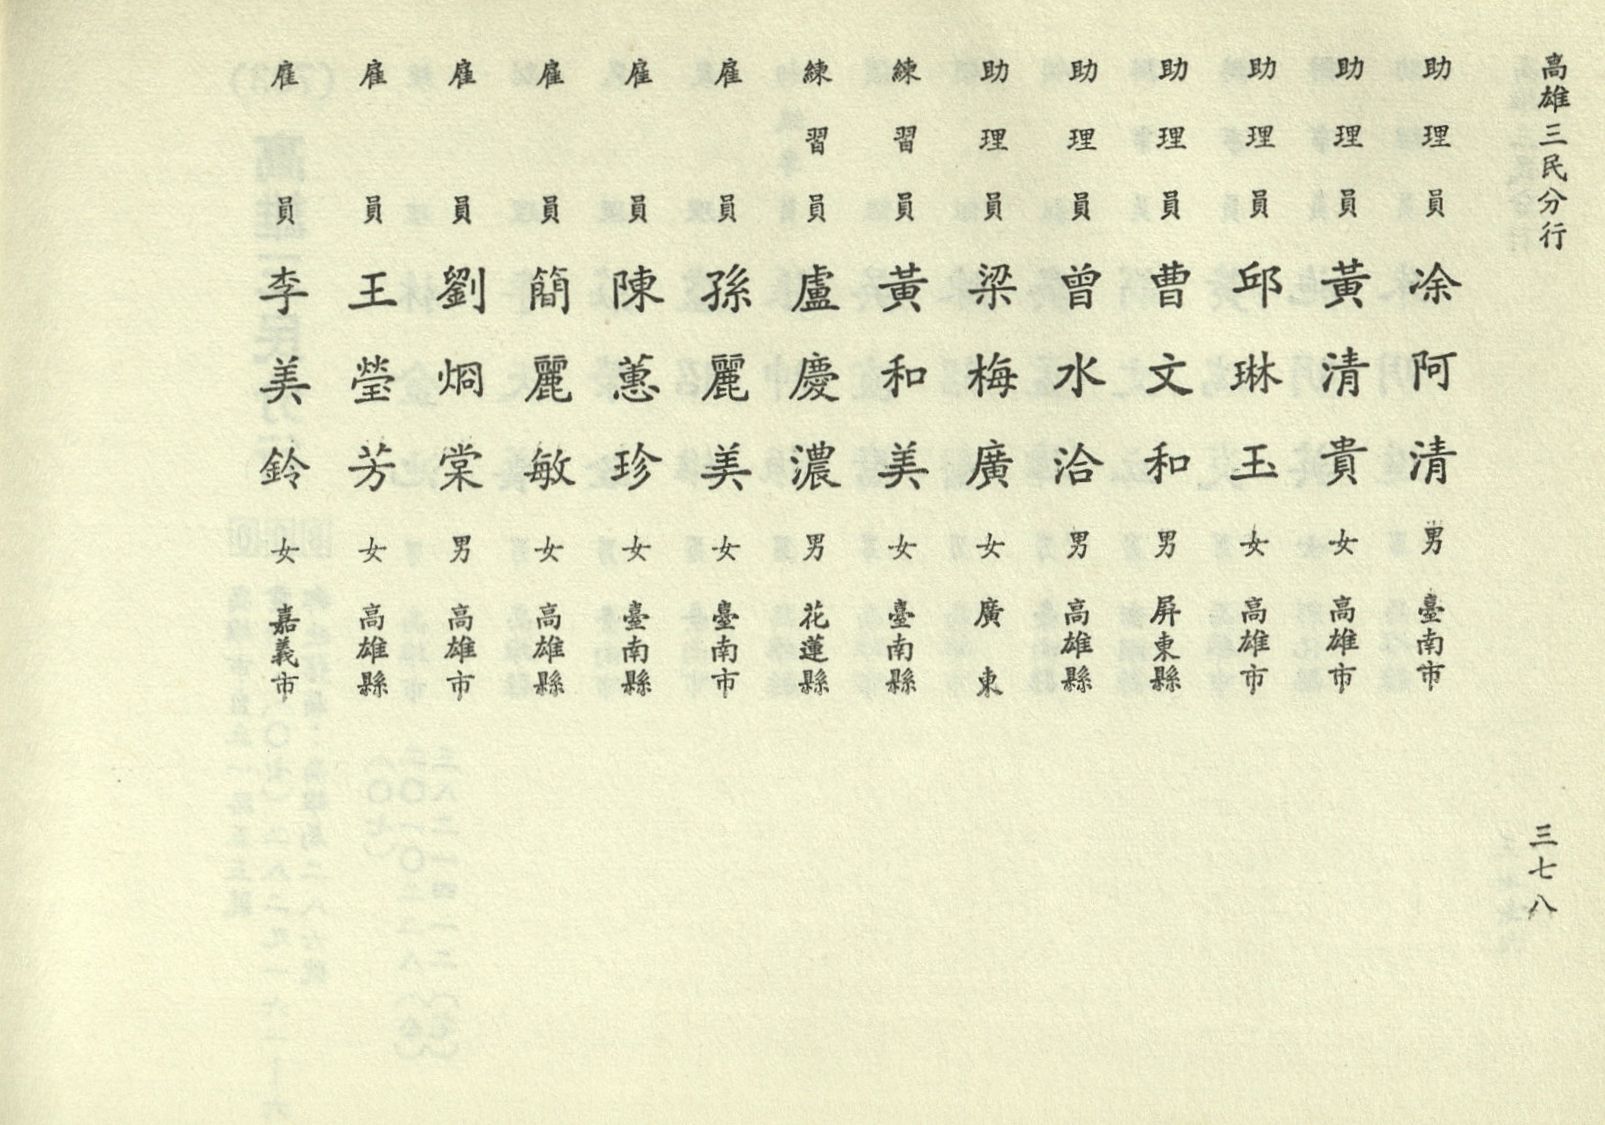 高雄三民分行
助理員 凃阿清 男 臺南市
助理員 黃清貴 女 高雄市
助理員 邱琳玉 女 高雄市
助理員 曹文和 男 屏東縣
助理員 曾水洽 男 高雄縣
助理員 梁梅廣 女 廣東
練習員 黃和美 女 臺南縣
練習員 盧慶濃 男 花蓮縣
雇員 孫麗美 女 臺南市
雇員 陳蕙珍 女 臺南縣
雇員 簡麗敏 女 高雄縣
雇員 劉烱棠 男 高雄市
雇員 王瑩芳 女 高雄縣
雇員 李美鈴 女 嘉義市
三七八